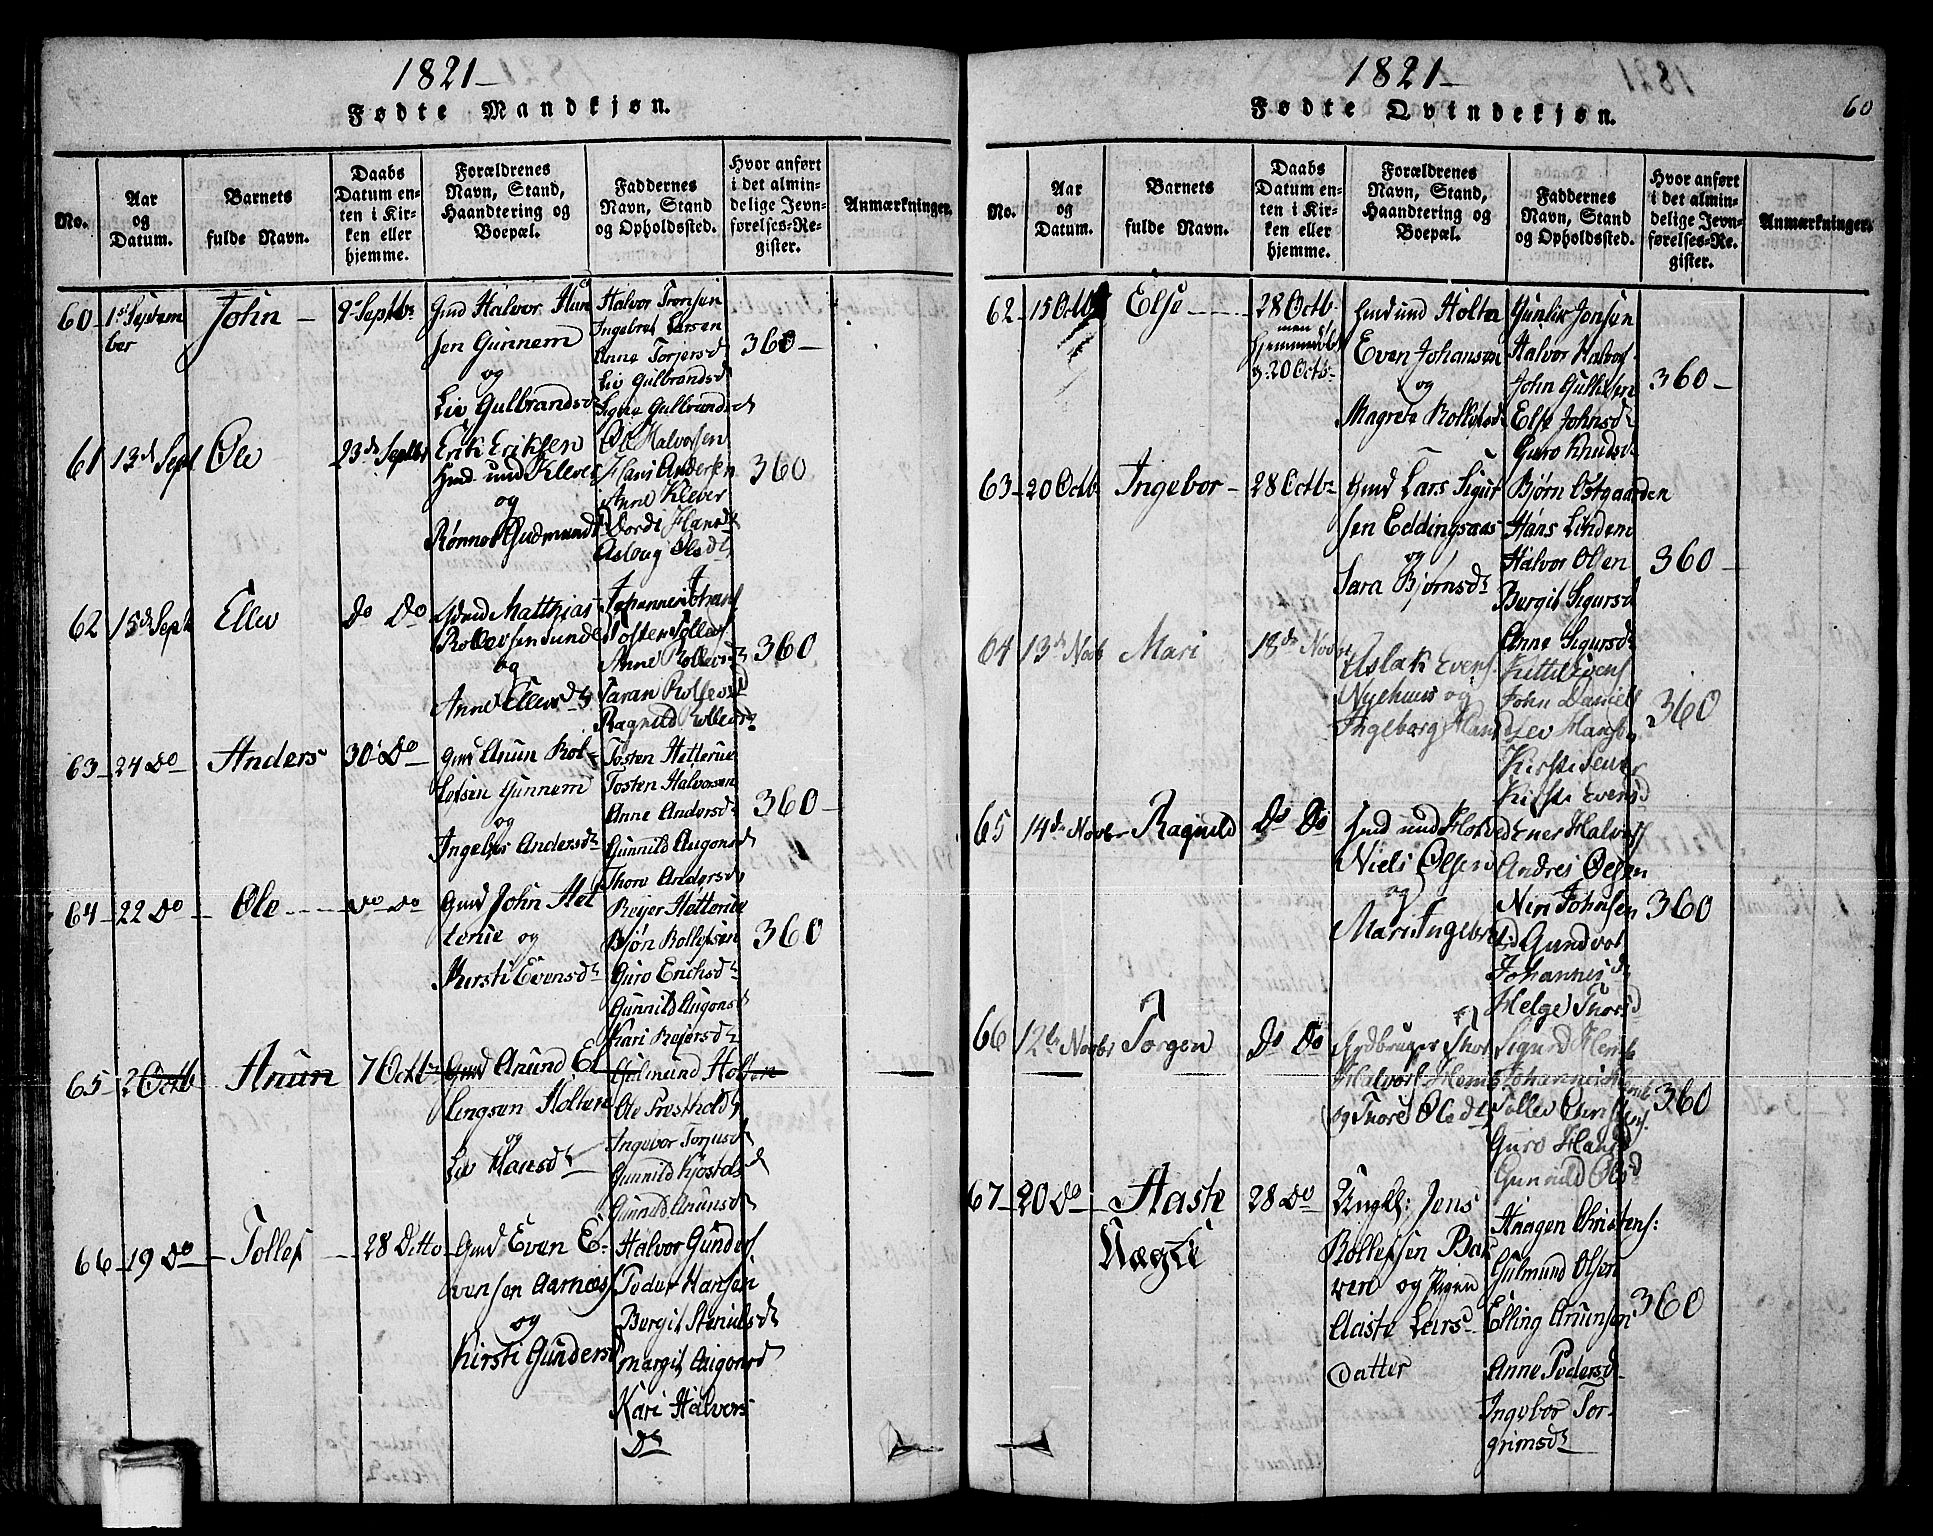 1821-
Fødte Mandkjøn.
No.
Aar
og
Datum.
Barnets
fulde Navn.
Daabs
Datum en-
ten i Kir-
ken eller
hjemme.
Forældrenes
Navn, Stand,
Haandtering og
Boepæl.
Faddernes
Navn, Stand
og Opholdssted.
Hvor anført
i det almin-
delige Jevn-
førelses-Re-
gister.
Anmærkninger.
60
1st Septem
ber
John
9 Septbr
Gmd Halvor Hun
sen Gunnem
og
Liv Gulbrandsdr
Halvor Tronsen
Ingebret Larsen
Anne Torjersd
Liv Gulbrandsd
Signe Gulbrandsd
360
61
13d Sept
Ole
23d Septbr
Erik Eriksen
Hmd und Klever
og
Rønnoe Gudmundsd
Ole Halvorsen
Hans Andersen
Anne Klever
Dordi Hansdr
Asloug Olsdr
360
62
15d Septb
Ellev
Do Do
Matthias
Rollevsen
og
Anne Ellevsdr
Johannes Johans
Tosten Tollevs
Anne Rollevsd
Taran Rollevsd
Ragnild Rollevsd
360
63
24 Do
Anders
30 Do
Gmd Anun Rol-
levsen Gunnem
og
Ingebor Andersdr
Tosten Hetterue
Tosten Halvorsen
Anne Andersdr
Gunnild Augonsd
Thore Andersdr
360
64
22 Do
Ole
Do Do
Gmd John Het
terue og
Kirsti Evensdr
Reijer Hetterue
Bjørn Rollefsen
Guro Erichsdr
Gunnild Augonsd
Kari Reijersdr
360
65
2 Octb
Anun
7 Octbr
Gmd Anund El
lengsen Holtene
og
Liv Hansdr
Gulmund Holten
Ole Presthold
Ingebor Torjusdr
Gunnild Kjostolsd
Gunnild Anunsdr
66
19 Do
Tollef
28 Ditto
Gmd Even E-
vensen Aarnæs
og
Kirsti Gundersd
Halvor Gunders
Peder Hansen
Bergit Stenulsdr
Margit Augonsd
Kari Halvors
Dr
1821-
Fødte Qvindekjøn.
60
No.
Aar
og
Datum.
Barnets
fulde Navn.
Daabs
Datum en-
ten i Kir-
ken eller
hjemme.
Forældrenes
Navn, Stand,
Haandtering og
Boepæl.
Faddernes
Navn, Stand
og Opholdssted.
Hvor anført
i det almin-
delige Jevn-
førelses-Re-
gister.
Anmærkninger.
62
15 Octb
Else
28 Octb
men
hjemmedbt
20 Octb
Hmd und Holta
Even Johansen
og
Magrete Rollefsd
Gunlix Jonsen
Halvor Halvors
John Gullixsen
Else Johnsdr
Guro Knudsdr
360
63
20 Octb
Ingebor
28 Octbr
Gmd Lars Sigur
sen Eddingsaas
og
Sara Bjørnsdr
Bjørn Østgaarden
Hans Lindem
Halvor Olsen
Bergit Sigursd
Anne Sigursdr
360
64
13d Novb
Mari
18d Novbr
Aslak Evens
Nyehuus og
Ingeborg Hansd
Kittil Evens
John Daniels
Lev Hans
Kirsti
Kirsti Evensd
360
65
14d Novbr
Ragnild
Do Do
Hmd und Holte
Niels Olsen
og
Mari Ingebrets
d
Ener Halvors
Andres Olsen
Niri Johnsen
Gundvol
Johannesdr
Helge Thorsd
360
66
12te Novbr
Torgen
Do Do
Jordbruger Thor
Halvors Hem
og Thore Olsdtr
Sigurd Hem
Johannes Hem
Tollev Christens.
Guro Hansd
Gunnild Olsd
360
67
20 Do
Aaste
Nægte
28 Do
Ungk: Jens
Rollefsen Bak
ken og Pigen
Aaste Lars-
datter
Haagen Christens:
Gulmund Olsen
Elling Anunsen
Anne Pedersd
Ingebor Tor-
grimsdr
360